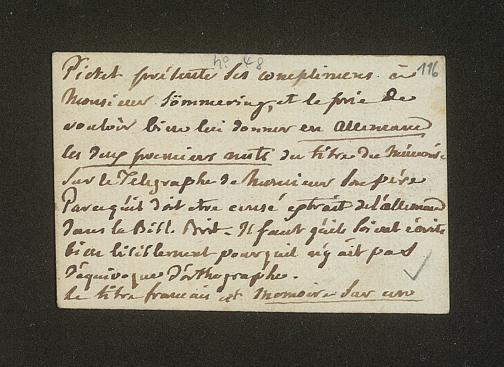 no 48
116
Pictet présente ses complimens à
Monsieur Sömmering, et le prie de
vouloir bien lui donner en allemand
les deux premiers mots du titre du Mémoire
sur le Télégraphe de Monsieur son père
Parcequ'il doit être censé extrait de l'allemand
dans la Bibl. Brit. Il faut qu'ils soient écrits
bien lisiblement pourqu'il n'y ait pas
d'équivoque d'orthographe.
Le titre français est Memoire sur une